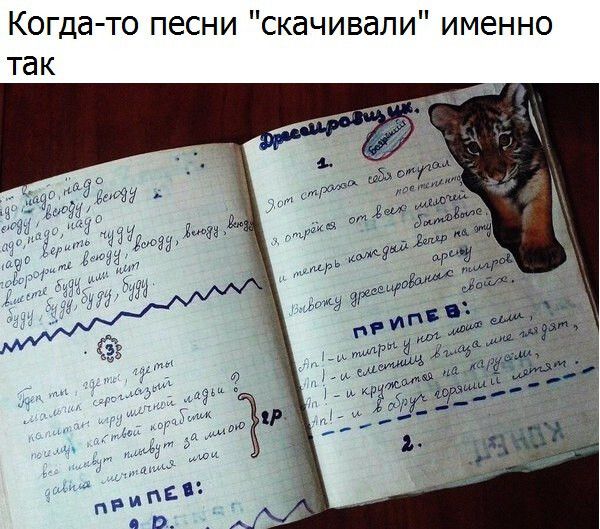 Когда-то песни "скачивали" именно
так
надо, надо
всюду, всюду
надо, надо
верить чуду
всюду, всюду, всюду
вместе буду или нет
буду, буду, буду, буду.
3
где ты, где ты
мальчик сероглазый
капитан игрушечной ладьи ?
почему, как твой кораблик
всё плывут плывут за мною
давние мечтания мои
2р.
ПРИПЕВ:
2 р.
Дрессировщик.
Боярский
1.
Я от страха себя отучал
постепенно
я отрёкся от всех мелочей
бытовых.
и теперь каждый вечер на эту
арену
Вывожу дрессированых тигров
своих.
ПРИПЕВ:
Ап! - и тигры у ног моих сели,
Ап! - и с лестниц в глаза мне глядят,
Ап! - и кружатся на карусели,
Ап! - и в обруч горящий летят.
2.
КОНЕЦ